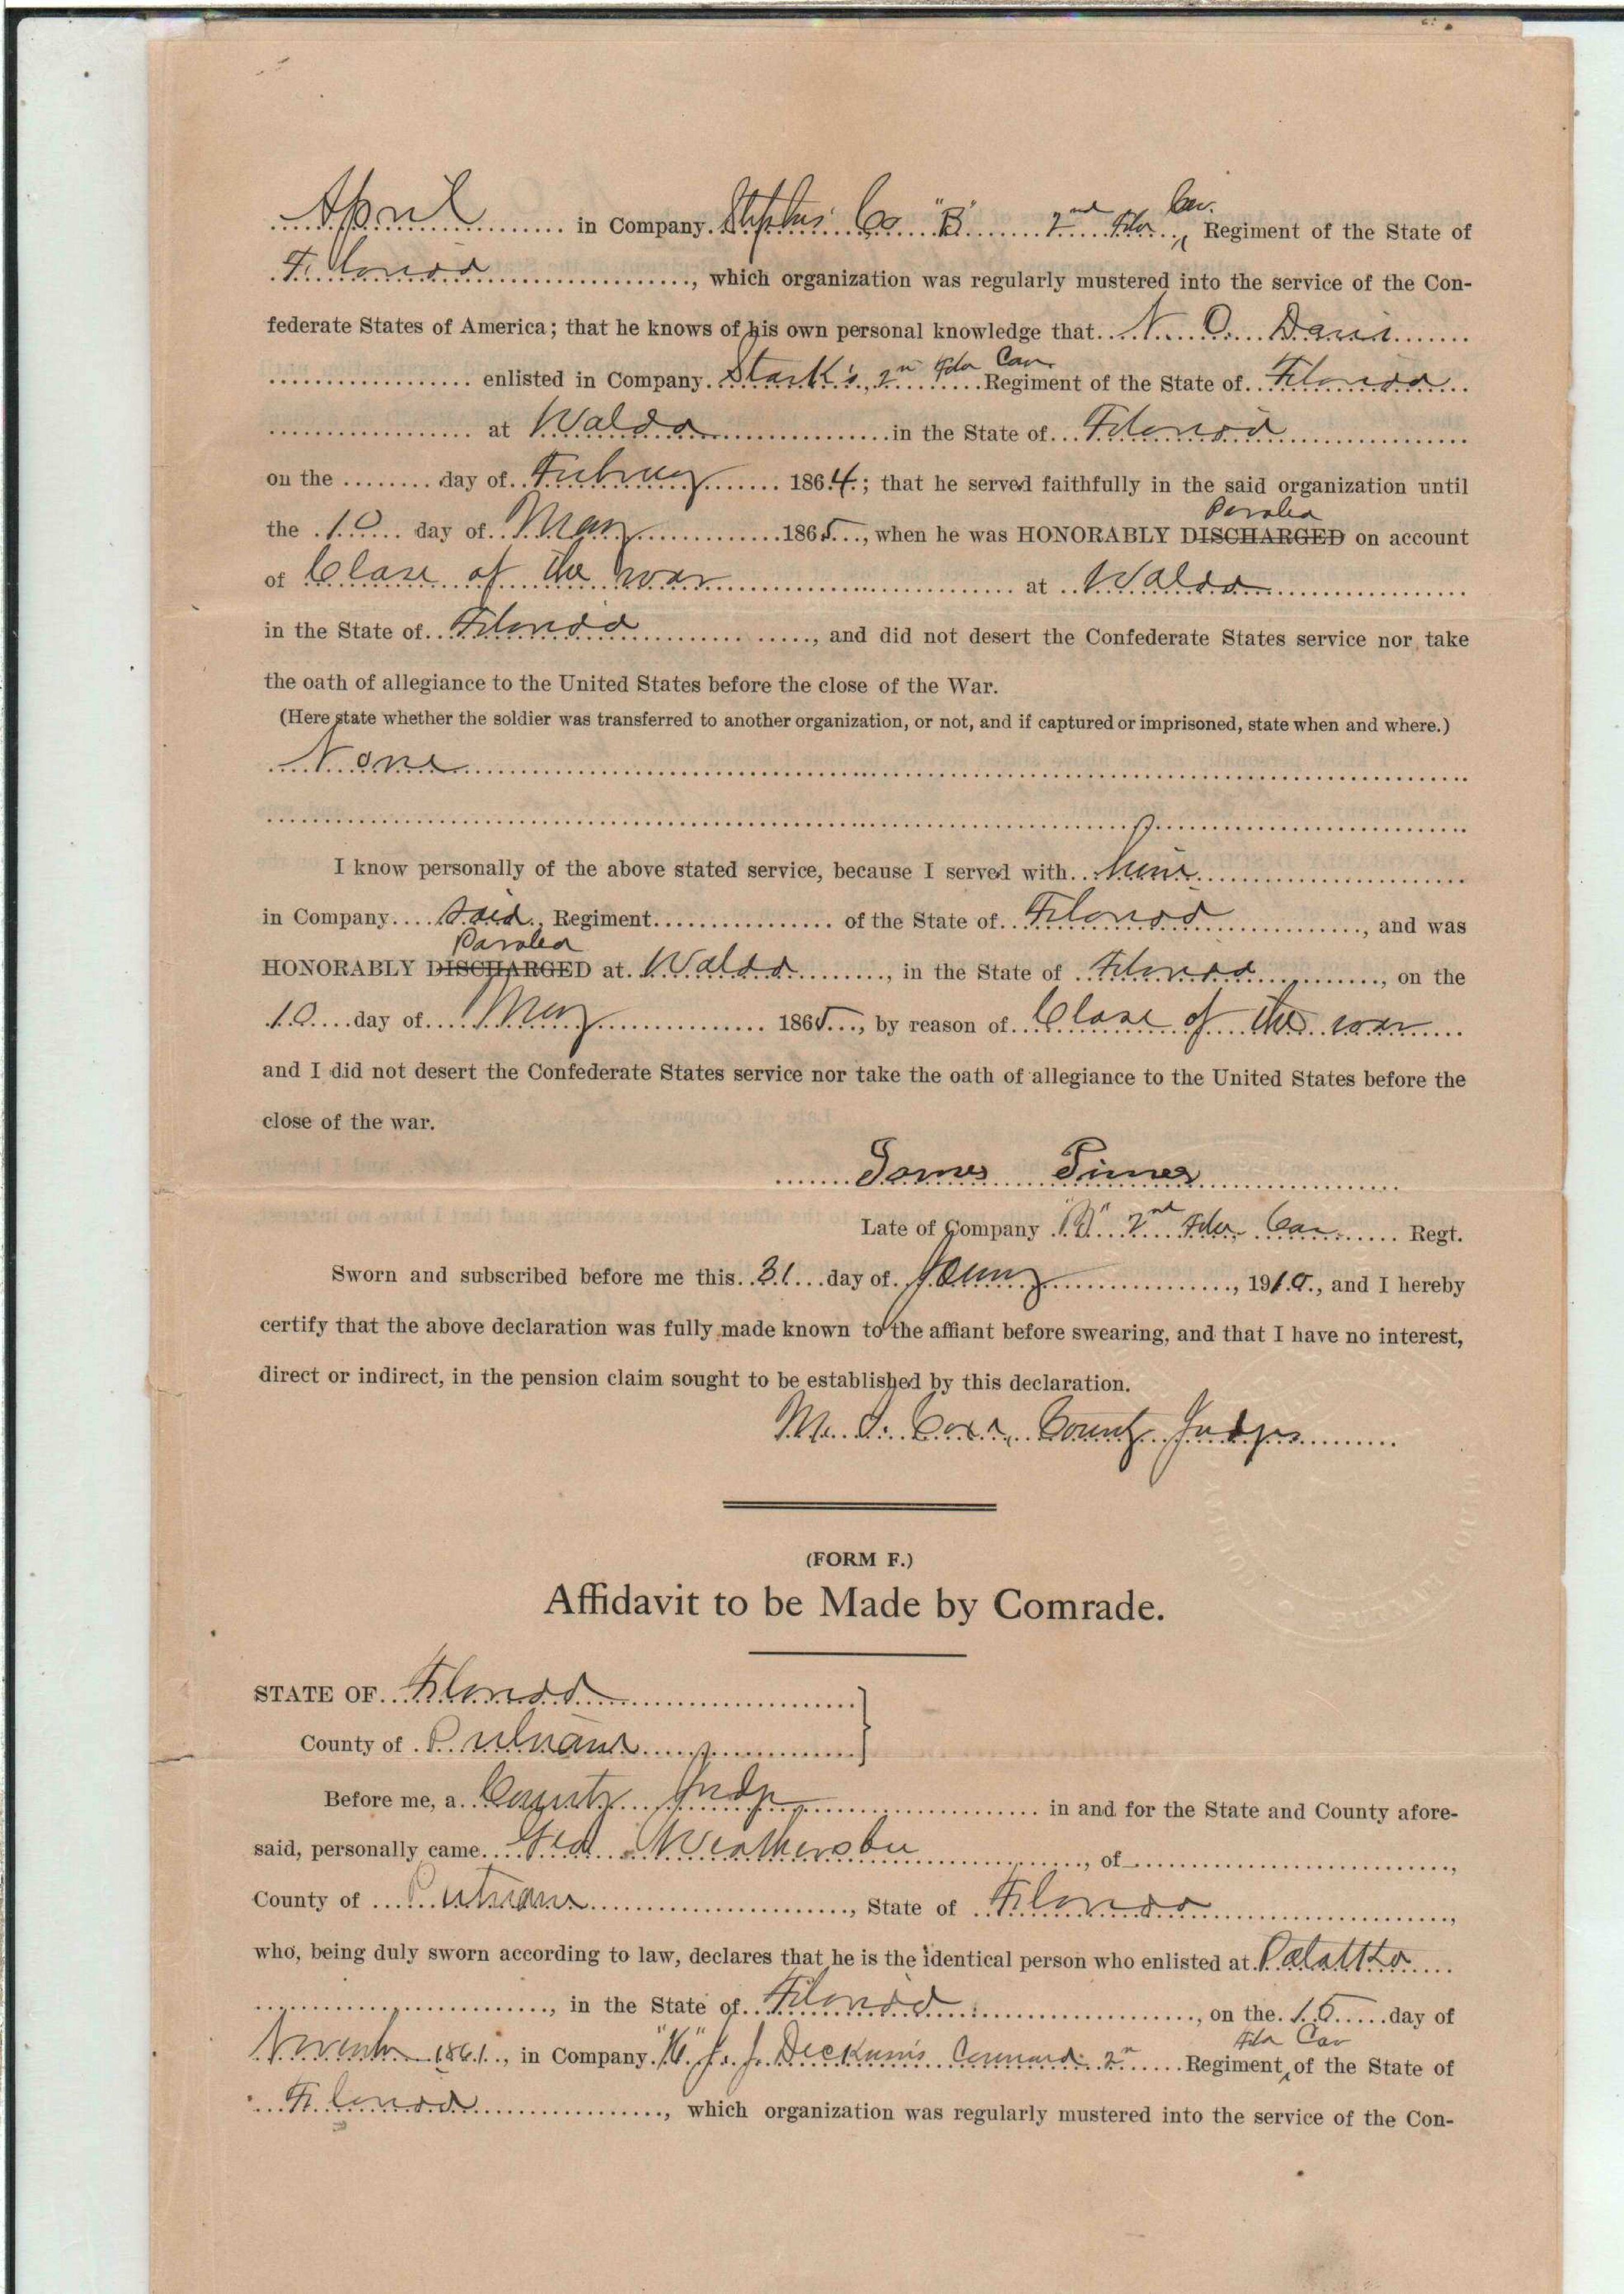 April in Company Co "B" 2nd Fla Cav. Regiment of the State of
Florida, which organization was regularly mustered into the service of the Con-
federate States of America; that he knows of his own personal knowledge that N. O. Davis
enlisted in Company Stark's, 2n Fla Cav Regiment of the State of Florida
at Waldo in the State of Florida
on the day of 1864; that he served faithfully in the said organization until
Paroled
the 10 day of May 1865, when he was HONORABLY DISCHARGED on account
of Close of the war at Waldo
in the State of Florida, and did not desert the Confederate States service nor take
the oath of allegiance to the United States before the close of the War.
(Here state whether the soldier was transferred to another organization, or not, and if captured or imprisoned, state when and where.)
None
I know personally of the above stated service, because I served with him
in Company Said, Regiment of the State of Florida, and was
Paroled
HONORABLY DISCHARGED at Waldo, in the State of Florida, on the
10 day of May 1865, by reason of Close of the war
and I did not desert the Confederate States service nor take the oath of allegiance to the United States before the
close of the war.
James
Late of Company "B" 2nd Fla Cav Regt.
Sworn and subscribed before me this 31 day of, 191, and I hereby
certify that the above declaration was fully made known to the affiant before swearing, and that I have no interest,
direct or indirect, in the pension claim sought to be established by this declaration.
M. County Judge
(FORM F.)
Affidavit to be Made by Comrade.
STATE OF Florida
County of Putnam
Before me, a County Judge in and for the State and County afore-
said, personally came Weathersbee, of,
County of Putnam, State of Florida,
who, being duly sworn according to law, declares that he is the identical person who enlisted at Palatka
, in the State of Florida, on the 15 day of
Fla Cav
1861, in Company "H" J. J. Dickison's Command 2n Regiment of the State of
Florida, which organization was regularly mustered into the service of the Con-